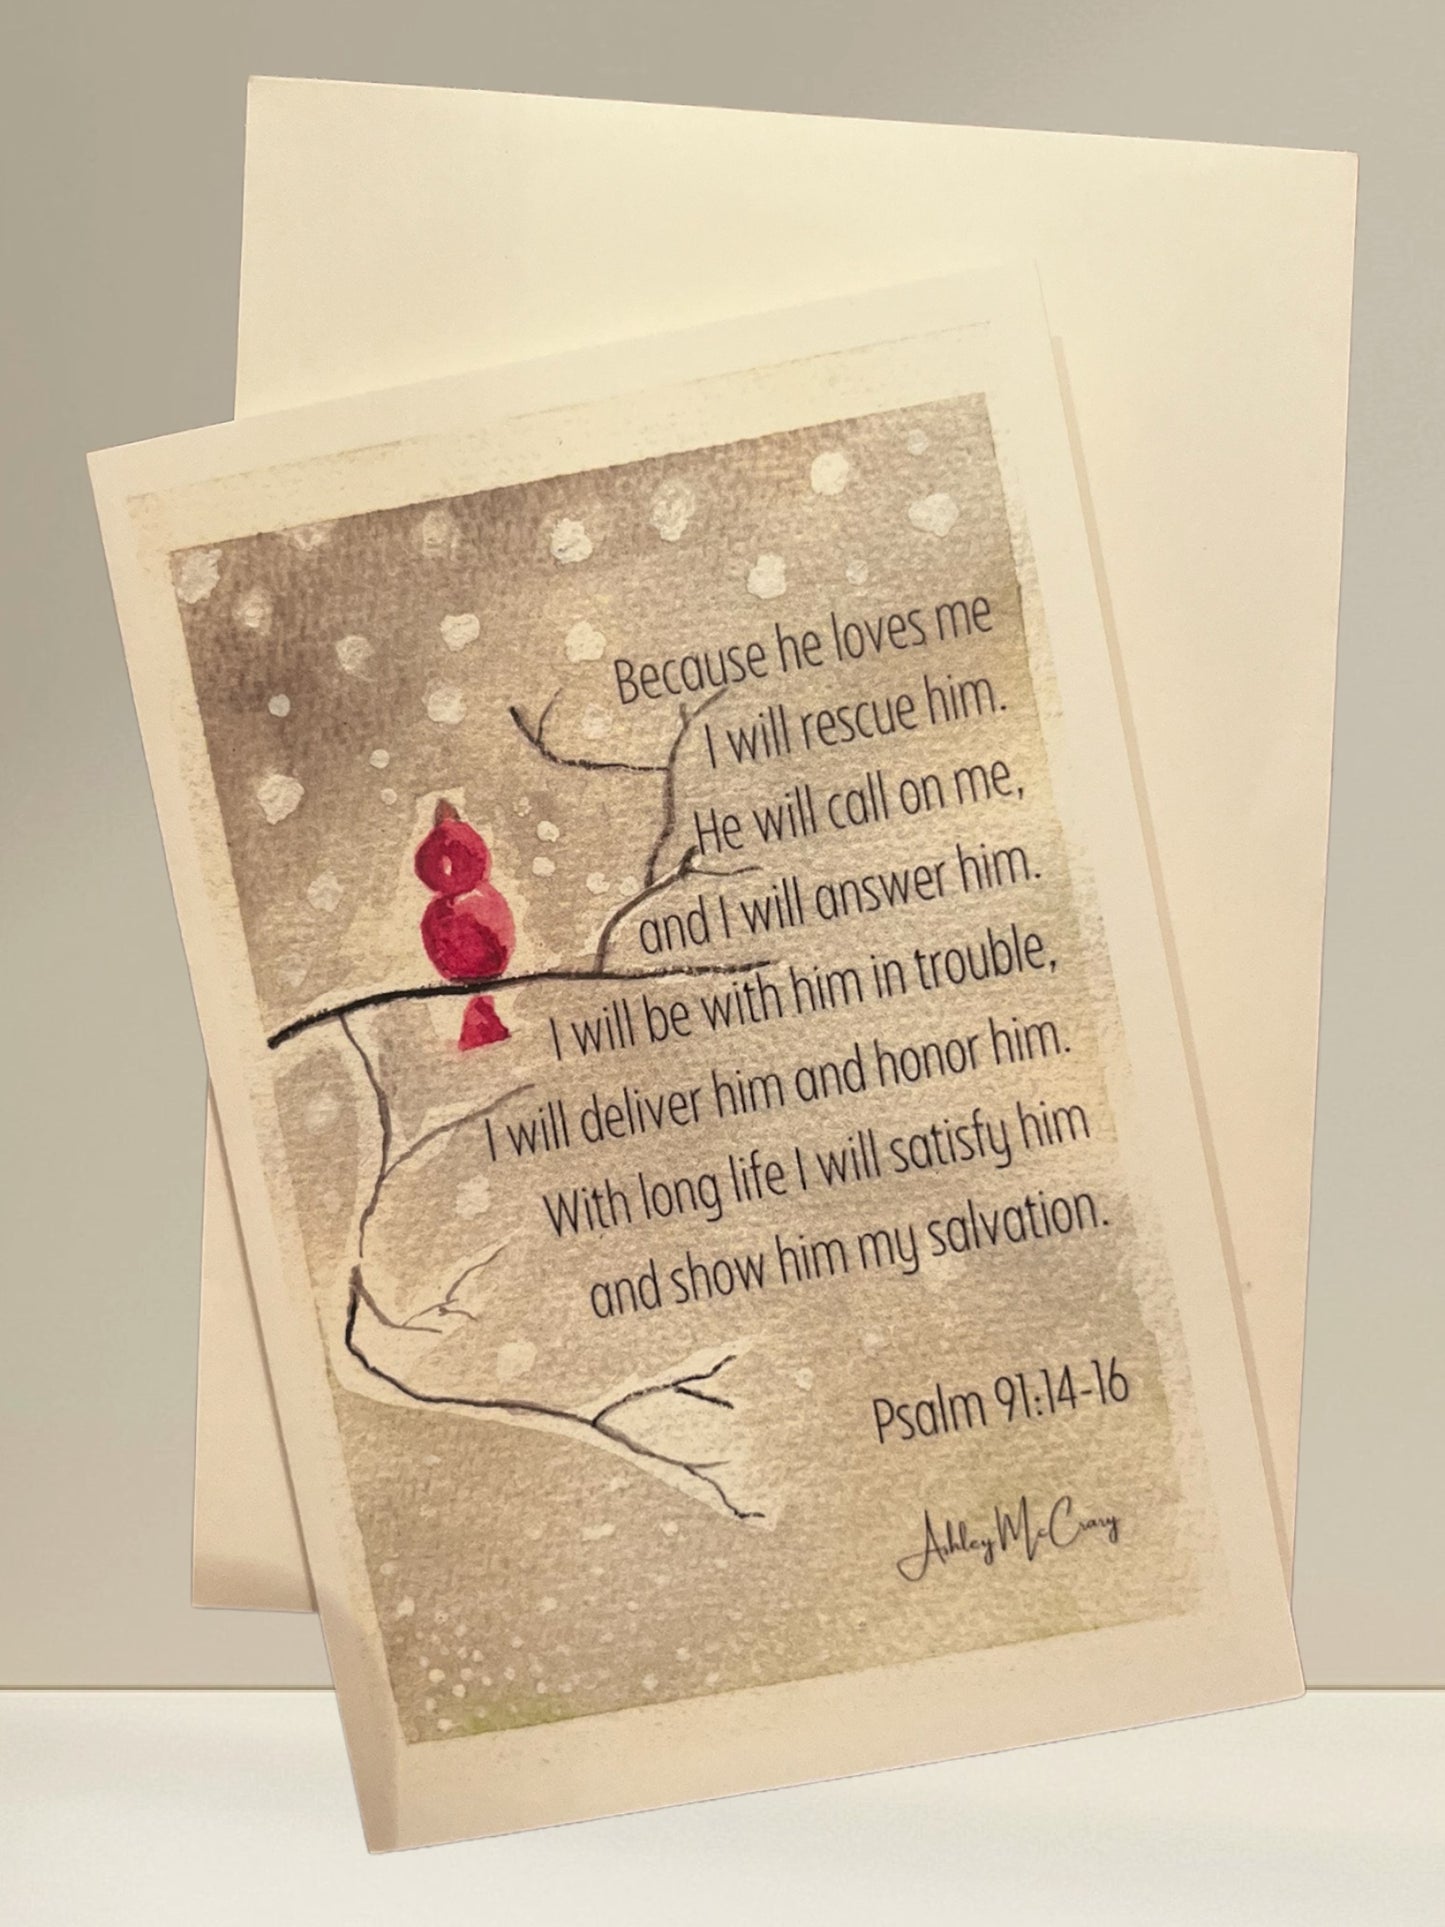 Because he loves me
I will rescue him.
He will call on me,
and I will answer him.
I will be with him in trouble,
I will deliver him and honor him.
With long life I will satisfy him
and show him my salvation.
Psalm 91:14-16
Ashley McCrary